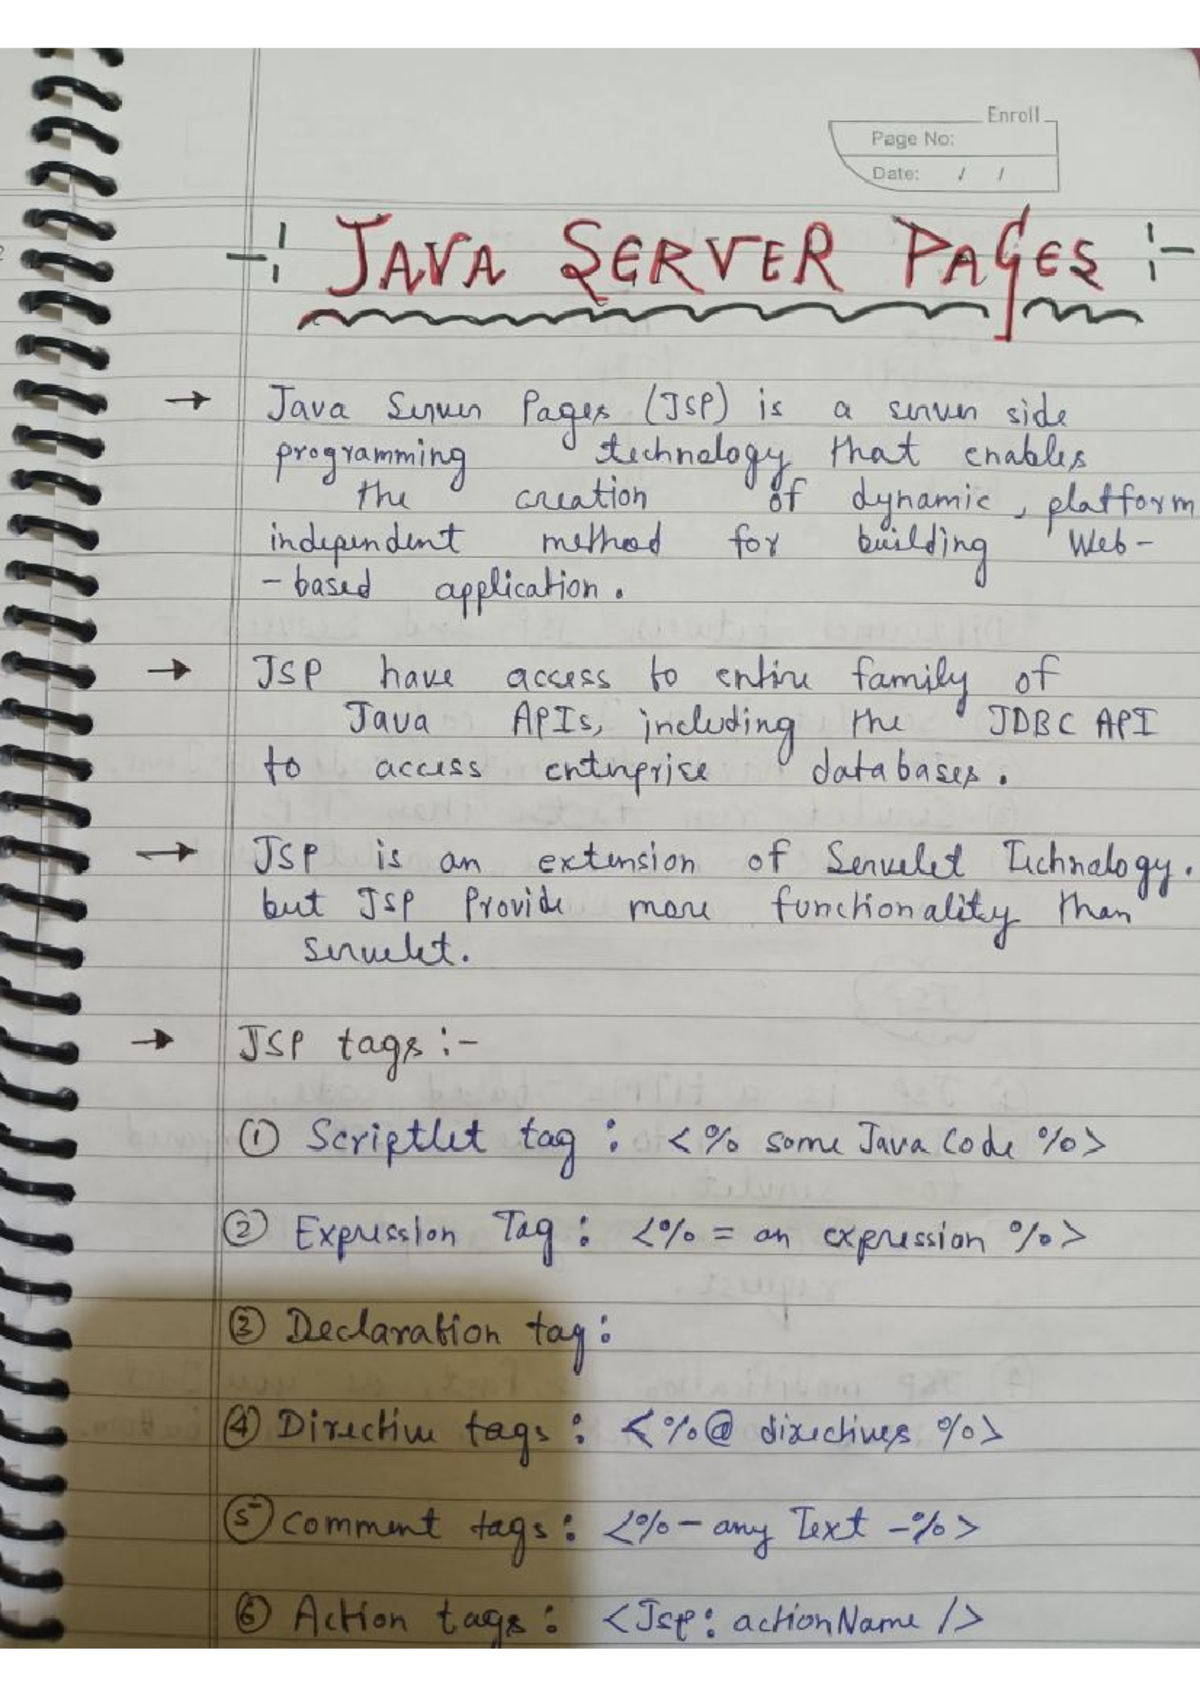 Enroll
Page No:
Date: / /
-: JAVA SERVER PAGES :-
→ Java Server Pages (JSP) is a server side
programming technology that enables
the creation of dynamic, platform
independent method for building Web-
-based application.
→ JSP have access to entire family of
Java APIs, including the JDBC API
to access enterprise databases.
→ JSP is an extension of Servelet Technology.
but JSP Provide more functionality than
Servelet.
→ JSP tags :-
① Scriptlet tag : <% some Java Code %>
② Expression Tag : <% = an expression %>
③ Declaration tag :
④ Directive tags : <%@ directives %>
⑤ Comment tags : <%- any Text -%>
⑥ Action tags : <Jsp: actionName />